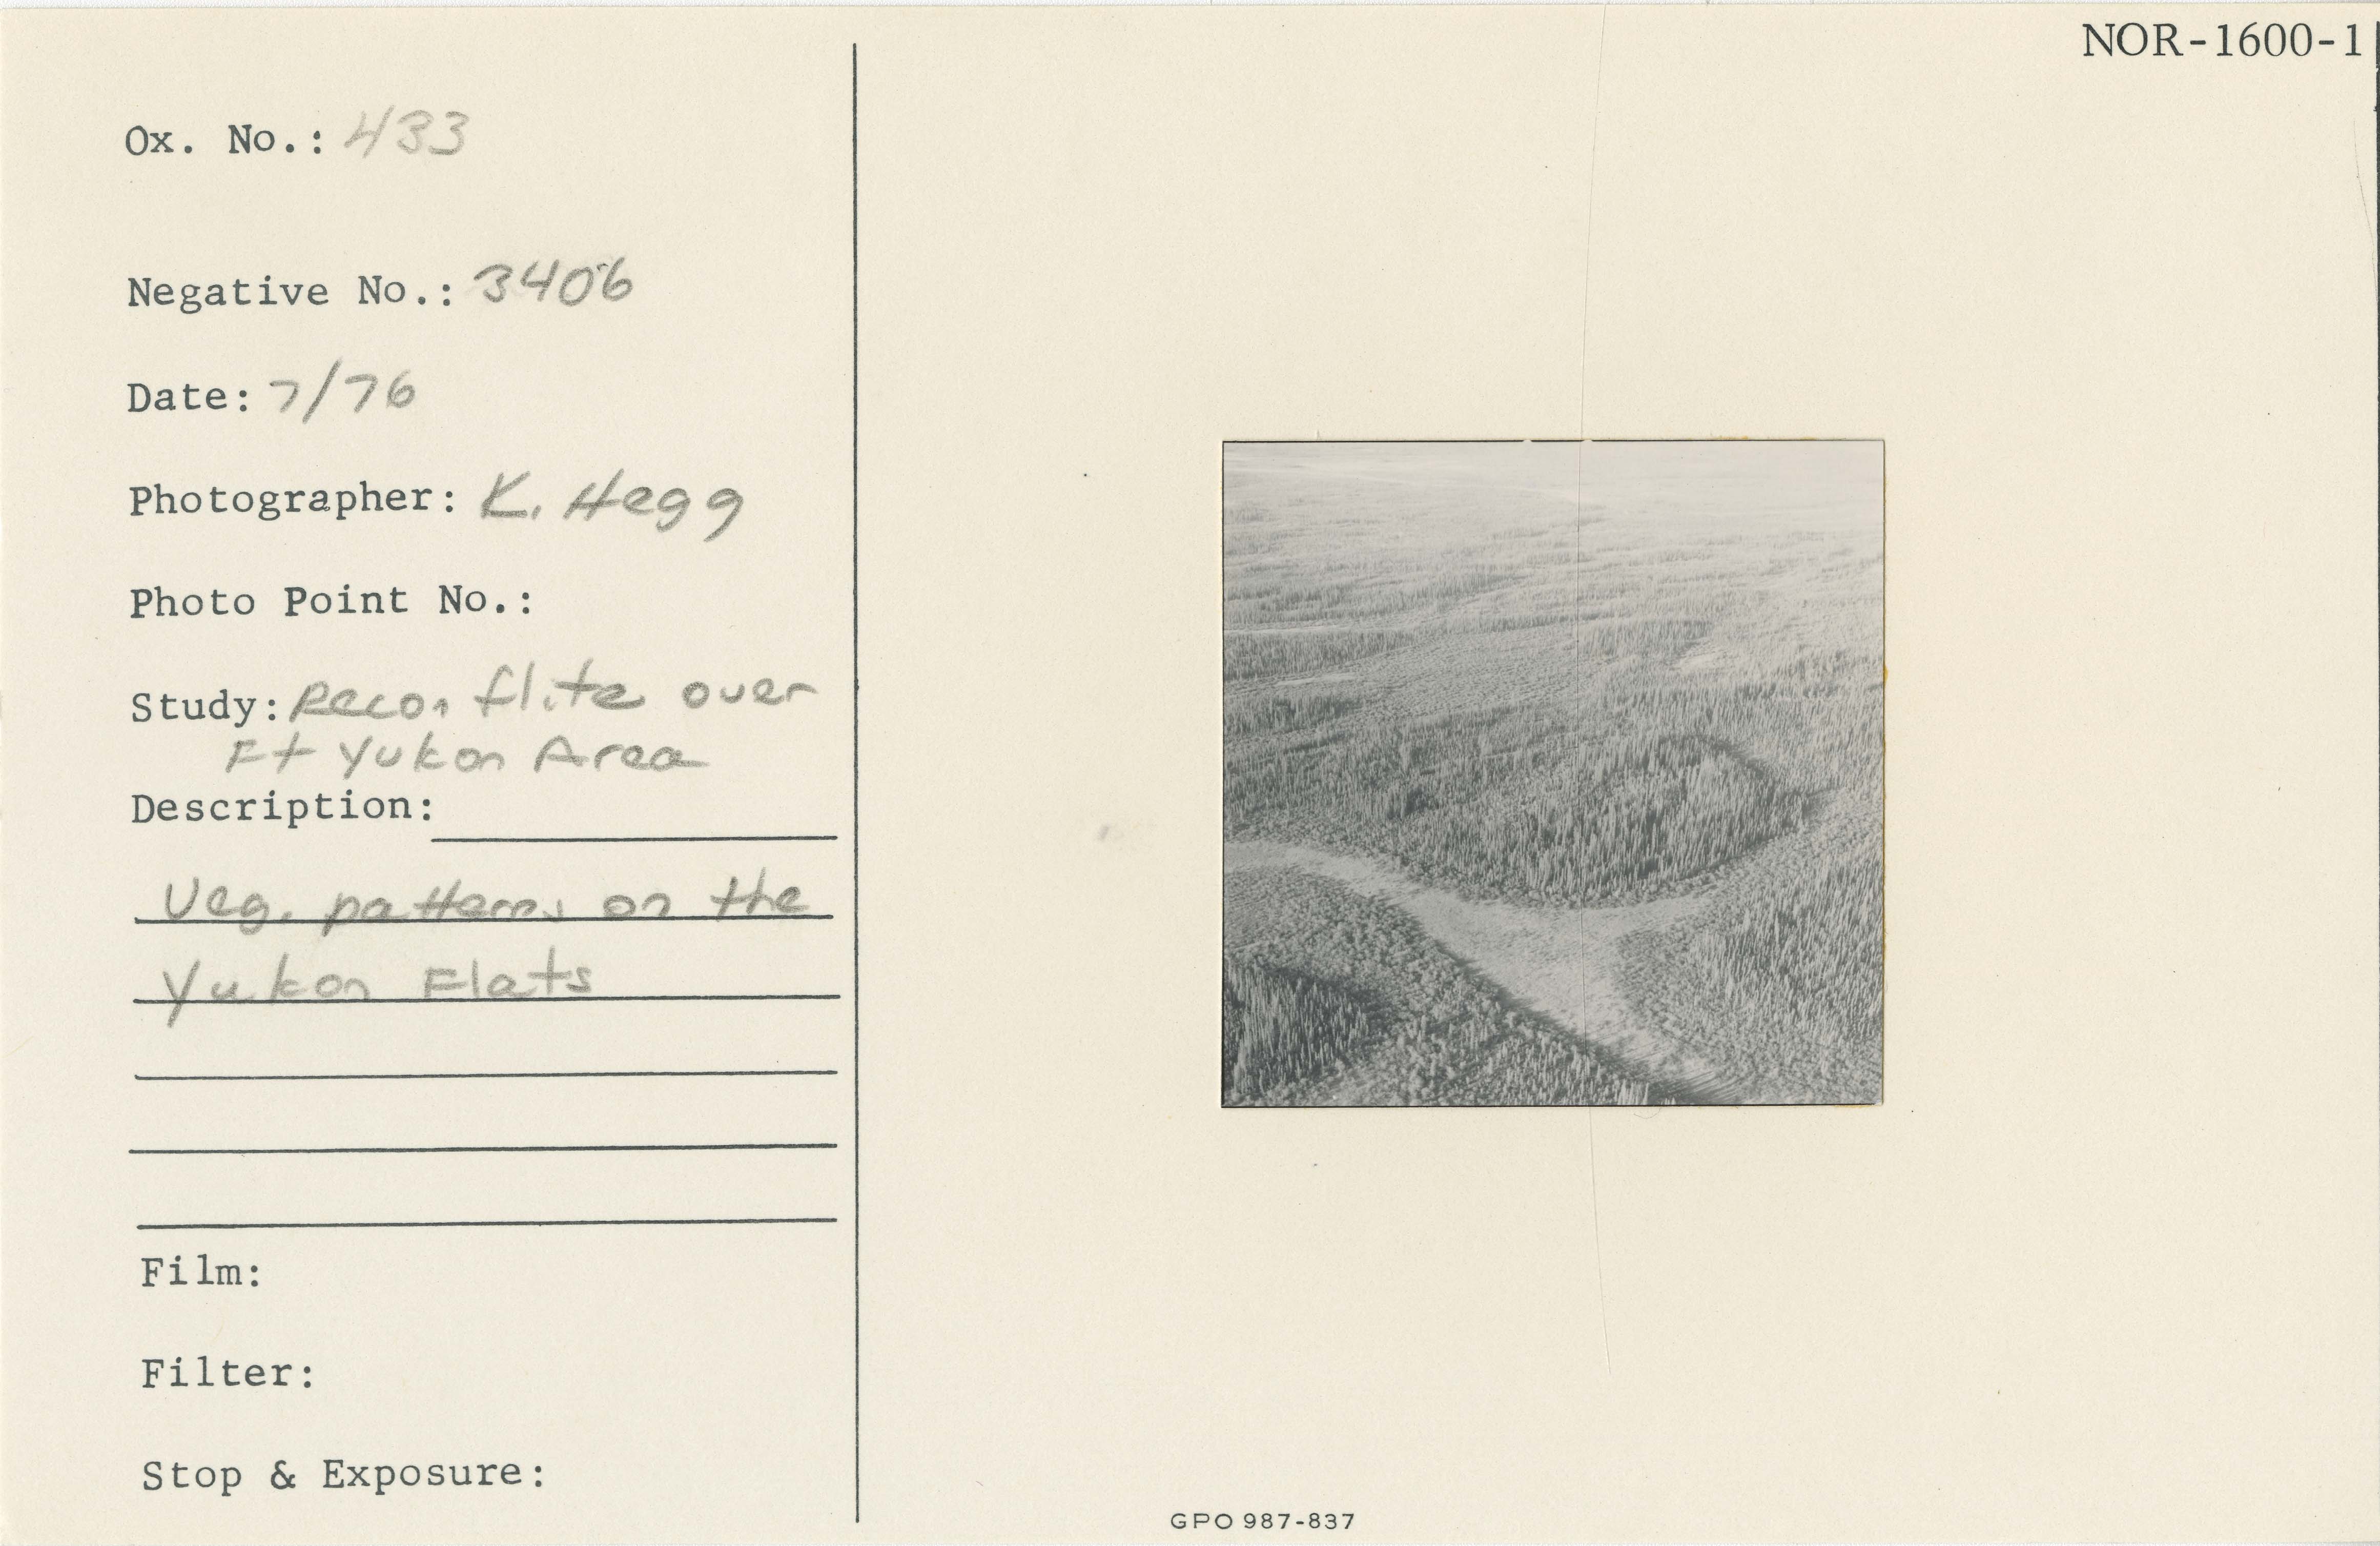 NOR-1600-1
Ox. No.: 433
Negative No.: 3406
Date: 7/76
Photographer: K. Hegg
Photo Point No.:
Study: Recon flite over
Ft Yukon Area
Description:
Veg. patterns on the
Yukon Flats
Film:
Filter:
Stop & Exposure:
GPO 987-837